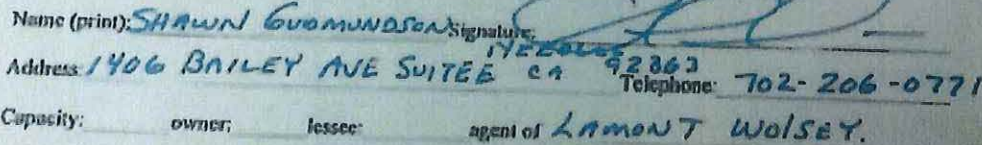 Name (print): SHAWN GUDMUNDSON Signature:
Address: 1406 BAILEY AVE SUITE E NEEDLES CA 92363 Telephone: 702-206-0771
Capacity: owner; lessee: agent of LAMONT WOLSEY.